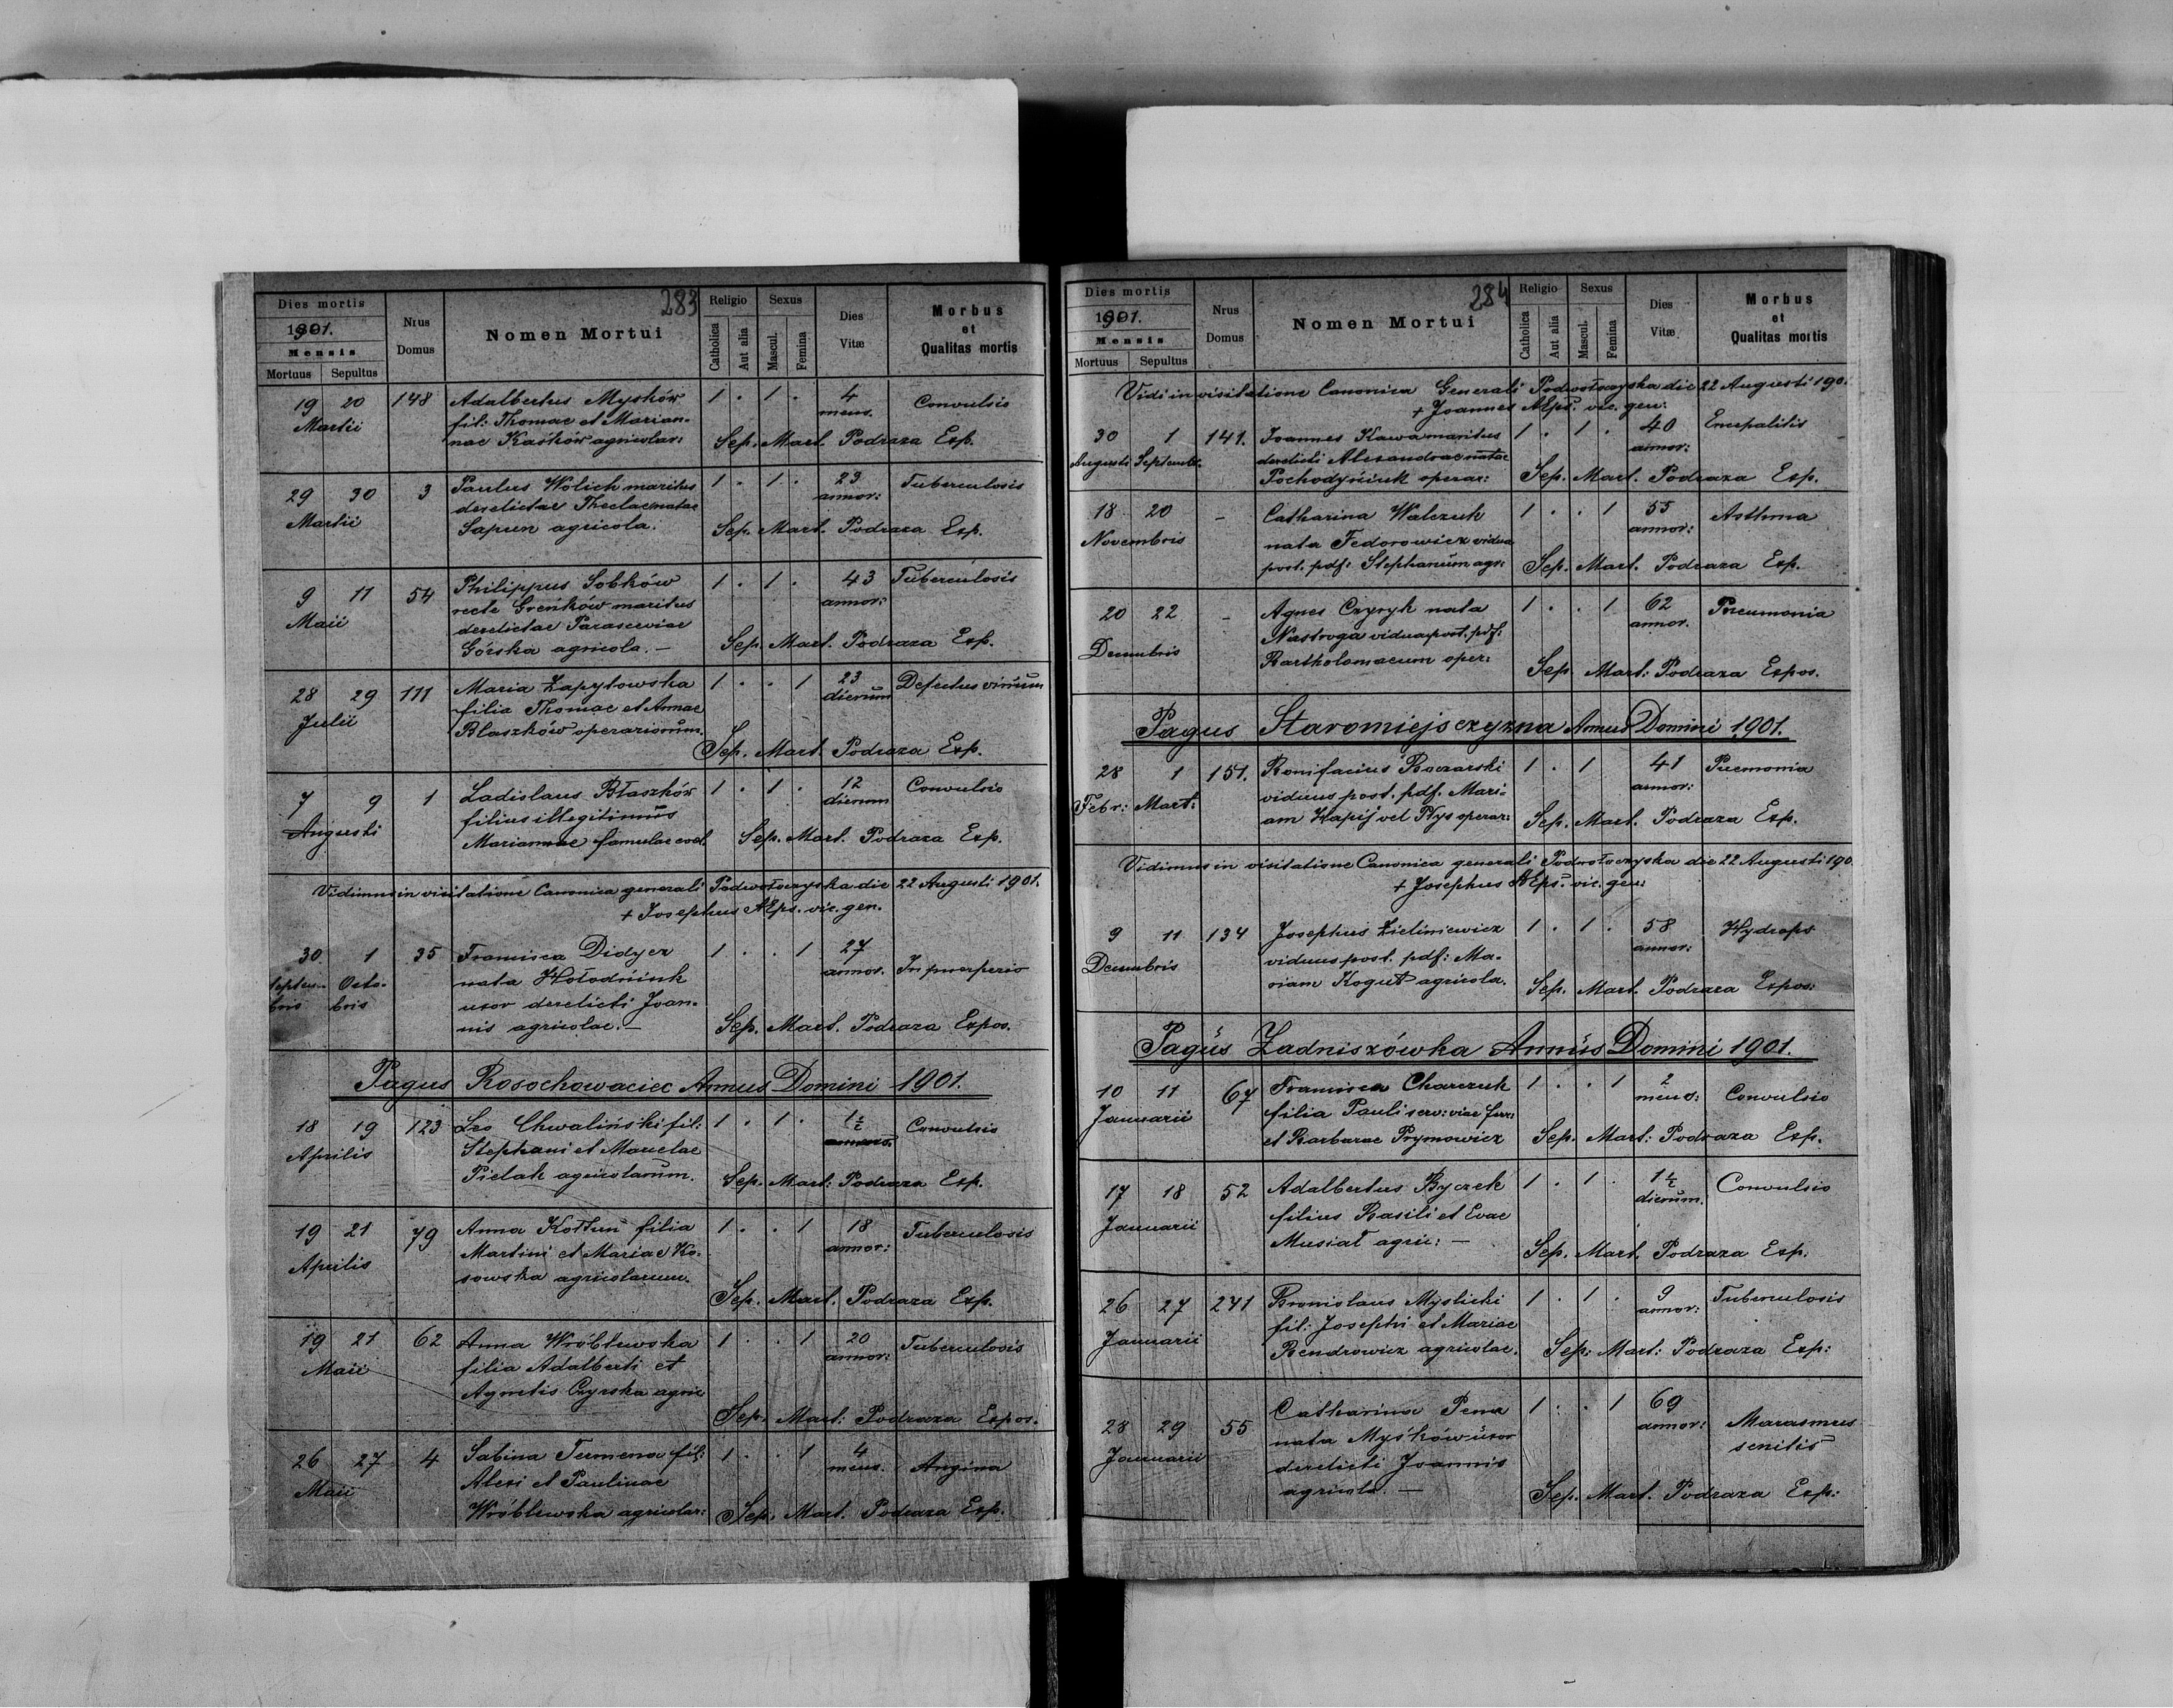 283
Dies mortis
1901.
Mensis
Mortuus Sepultus
Nrus Domus
Nomen Mortui
Religio
Catholica Aut alia
Sexus
Mascul. Femina
Dies Vitæ
Morbus et Qualitas mortis
19 20 148 Adalbertus Myśków 1 . 1 . 4 Convulsio
Martii fil: Thomae et Marian- mens.
nae Kaśków agricolar: Sep. Mart. Podraza Exp.
29 30 3 Paulus Wolich maritus 1 . 1 . 23 Tuberculosis
Martii derelictae Theclae natae annor:
Sapun agricola. Sep. Mart. Podraza Exp.
9 11 54 Philippus Sobków 1 . 1 . 43 Tuberculosis
Maii recte Greńków maritus annor:
derelictae Parasceviae
Górska agricola. — Sep. Mart. Podraza Exp.
28 29 111 Maria Zapytowska 1 . . 1 23 Defectus virium
Julii filia Thomae et Annae dierum
Błaszków operariorum. Sep. Mart. Podraza Exp.
7 9 1 Ladislaus Błaszków 1 . 1 . 12 Convulsio
Augusti filius illegitimus dierum
Mariannae famulae coel. Sep. Mart. Podraza Exp.
Vidimus in visitatione Canonica generali Podwołoczyska die 22 Augusti 1901.
+ Josephus AEps. vic. gen.
30 1 35 Francisca Didycz 1 . . 1 27
Septem- Octo- nata Hołodniuk annor. In puerperio
bris bris uxor derelicti Joan-
nis agricolae. — Sep. Mart. Podraza Expos.
Pagus Rosochowaciec Annus Domini 1901.
18 19 123 Leo Chwaliński fil: 1 . 1 . 1½ Convulsio
Aprilis Stephani et Marcelae
Pielak agricolarum. Sep. Mart: Podraza Exp.
19 21 79 Anna Kołtun filia 1 . . 1 18 Tuberculosis
Aprilis Martini et Mariae Ko- annor:
sowska agricolarum. Sep. Mart. Podraza Exp.
19 21 62 Anna Wróblewska 1 . . 1 20 Tuberculosis
Maii filia Adalberti et annor:
Agnetis Czyrska agric Sep. Mart: Podraza Expos.
26 27 4 Sabina Termena fil: 1 . . 1 4 Angina
Maii Alexi et Paulinae mens.
Wróblewska agricolar: Sep. Mart. Podraza Exp.
284
Dies mortis
1901.
Mensis
Mortuus Sepultus
Nrus Domus
Nomen Mortui
Religio
Catholica Aut alia
Sexus
Mascul. Femina
Dies Vitæ
Morbus et Qualitas mortis
Vidi in visitatione Canonica Generali Podwołoczyska die 22 Augusti 190.
+ Joannes AEps. vic. gen:
30 1 141. Joannes Kawa maritus 1 . 1 . 40 Encepalitis
Augusti Septemb. derelicti Alexandrae natae annor:
Pochodyniuk operar: Sep. Mart. Podraza Exp.
18 20 - Catharina Walczuk 1 . . 1 55 Asthma
Novembris nata Fedorowicz vidua annor:
post. pdf: Stephanum agr: Sep. Mart. Podraza Exp.
20 22 - Agnes Czyryk nata 1 . . 1 62 Pneumonia
Decembris Nastroga vidua post. pdf: annor.
Bartholomaeum oper: Sep. Mart: Podraza Expos.
Pagus Staromiejsczyzna Annus Domini 1901.
28 1 151. Bonifacius Boczarski 1 . 1 41 Pnemonia
Febr: Mart: viduus post. pdf. Mari- annor:
am Kapij vel Rys operar: Sep. Mart. Podraza Exp.
Vidimus in visitatione Canonica generali Podwołoczyska die 22 Augusti 190
+ Josephus AEps. vic. gen:
9 11 134 Josephus Zieliniewicz 1 . 1 . 58 Hydrops
Decembris viduus post. pdf: Ma- annor:
riam Kogut agricola. Sep. Mart. Podraza Expos:
Pagus Zadniszówka Annus Domini 1901.
10 11 67 Francisca Charczuk 1 . . 1 2 Convulsio
Januarii filia Pauli serv: viae ferr: mens:
et Barbarae Prymowicz Sep. Mart: Podraza Exp.
17 18 52 Adalbertus Byczek 1 . 1 . 1½ Convulsio
Januarii filius Basili et Evae dierum.
Musiał agric: — Sep. Mart. Podraza Exp:
26 27 241 Bronislaus Myslicki 1 . 1 . 9 Tuberculosis
Januarii fil: Josephi et Mariae annor:
Bendrowicz agricolae. Sep: Mart: Podraza Exp:
28 29 55 Catharina Pena 1 . . 1 69 Marasmus
Januarii nata Myśków uxor annor: senilis
derelicti Joannis
agricola. — Sep. Mart. Podraza Exp: